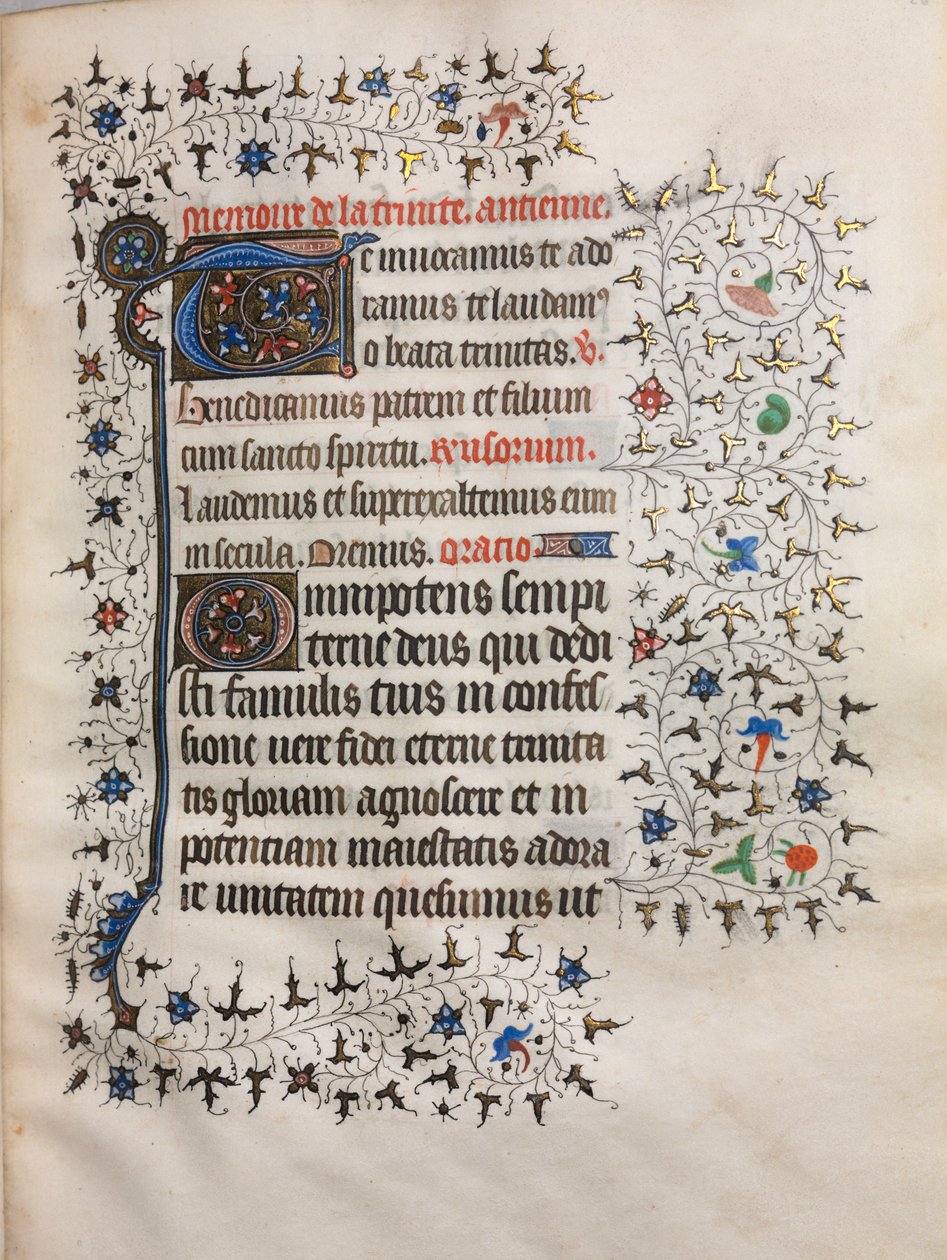 Memoire de la trinite. antienne.
Te inuocamus te ado
ramus te laudamꝰ
o beata trinitas. V̷.
Benedicamus patrem et filium
cum sancto spiritu. Rn̄sorium.
Laudemus et superexaltemus eum
in secula. Oremus. Oratio.
Omnipotens sempi
terne deus qui dedi
sti famulis tuis in confes
sione uere fidei eterne trinita
tis gloriam agnoscere et in
potentiam maiestatis adora
re unitatem quesumus ut